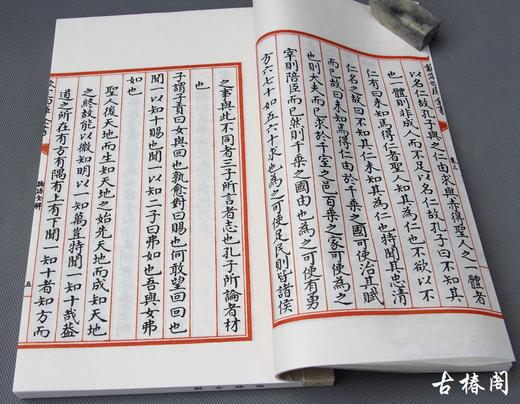 以名仁故孔子與之仁由求與赤得聖人之一體者
也一體則非欲人而不足以名仁故孔子曰不知其
仁有曰未知焉得仁者聖人知其為仁也不欲以不
仁名之故曰不知其仁未知其為仁也特聞其忠清
而已故曰未知焉得仁由於千乘之國可使治其賦
也則大夫而已求於千室之邑百乘之家可使為之
宰則陪臣而已然則千乘之國由也為之可使有勇
方六七十如五六十求也為之可使足民則皆諸侯
之事與此不同者三子所言者志也孔子所論者材
也
子謂子貢曰女與回也孰愈對曰賜也何敢望回回也
聞一以知十賜也聞一以知二子曰弗如也吾與女弗
如也
聖人後天地而生知天地之始先天地而成知天地
之終故能以微知明以一知萬豈特聞一知十哉蓋
道之所在有方有隅有上有下聞一知十者知方而
論語全解
五
古椿閣